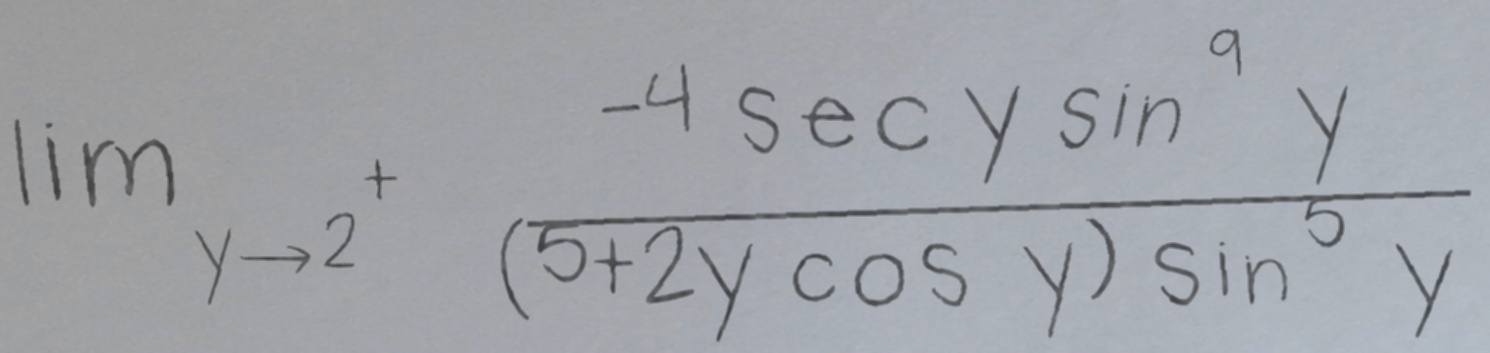 lim y→2⁺ -4 sec y sin⁹ y / (5+2y cos y) sin⁵ y